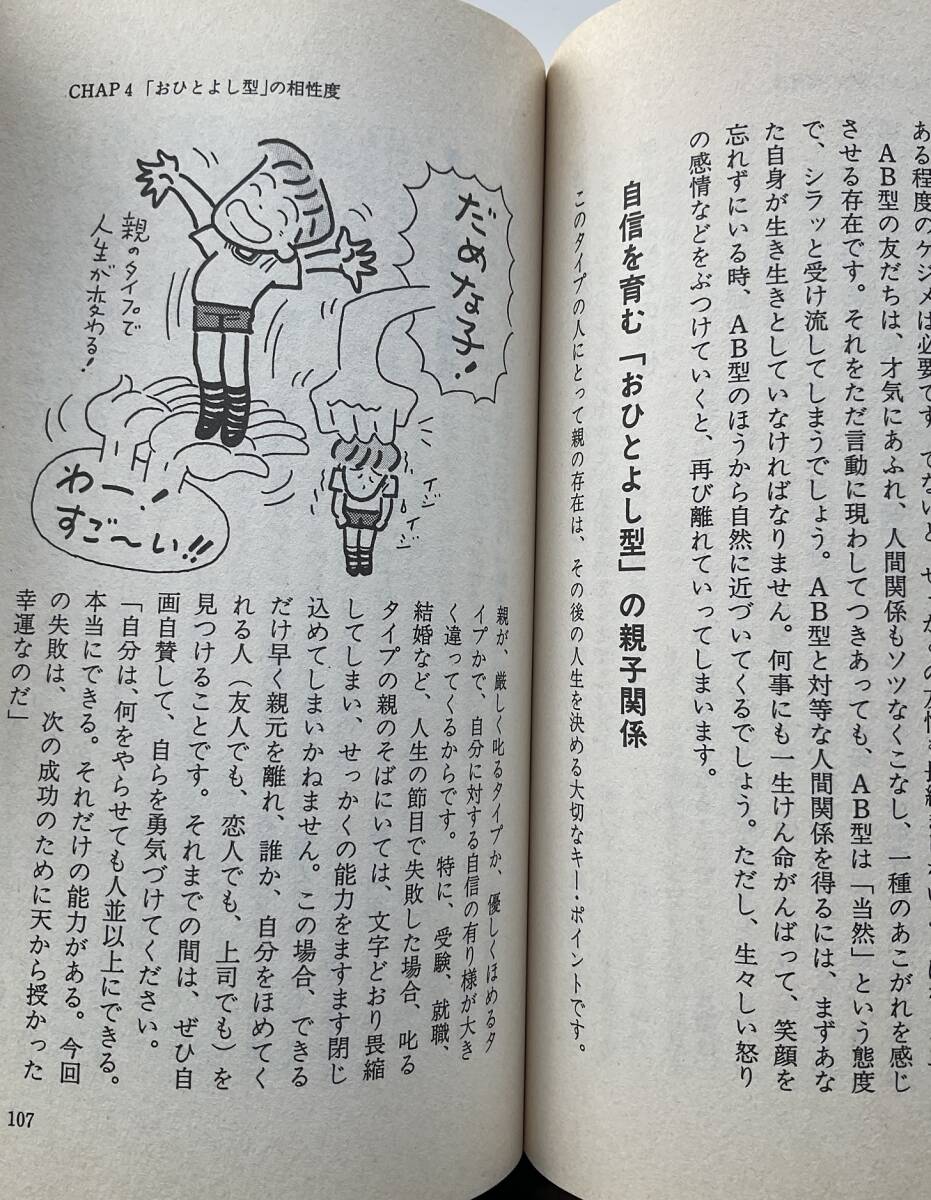 ある程度のケジメは必要です。でないと、せっかくの友情も長続き
AB型の友だちは、才気にあふれ、人間関係もソツなくこなし、一種のあこがれを感じ
させる存在です。それをただ言動に現わしてつきあっても、AB型は「当然」という態度
で、シラッと受け流してしまうでしょう。AB型と対等な人間関係を得るには、まずあな
た自身が生き生きとしていなければなりません。何事にも一生けん命がんばって、笑顔を
忘れずにいる時、AB型のほうから自然に近づいてくるでしょう。ただし、生々しい怒り
の感情などをぶつけていくと、再び離れていってしまいます。
自信を育む「おひとよし型」の親子関係
このタイプの人にとって親の存在は、その後の人生を決める大切なキー・ポイントです。
CHAP 4「おひとよし型」の相性度
だめな子!
親のタイプで
人生が変わる!
わー!
すご〜い!!
イジ
イジ
親が、厳しく叱るタイプか、優しくほめるタ
イプかで、自分に対する自信の有り様が大き
く違ってくるからです。特に、受験、就職、
結婚など、人生の節目で失敗した場合、叱る
タイプの親のそばにいては、文字どおり畏縮
してしまい、せっかくの能力をますます閉じ
込めてしまいかねません。この場合、できる
だけ早く親元を離れ、誰か、自分をほめてく
れる人(友人でも、恋人でも、上司でも)を
見つけることです。それまでの間は、ぜひ自
画自賛して、自らを勇気づけてください。
「自分は、何をやらせても人並以上にできる。
本当にできる。それだけの能力がある。今回
の失敗は、次の成功のために天から授かった
幸運なのだ」
107